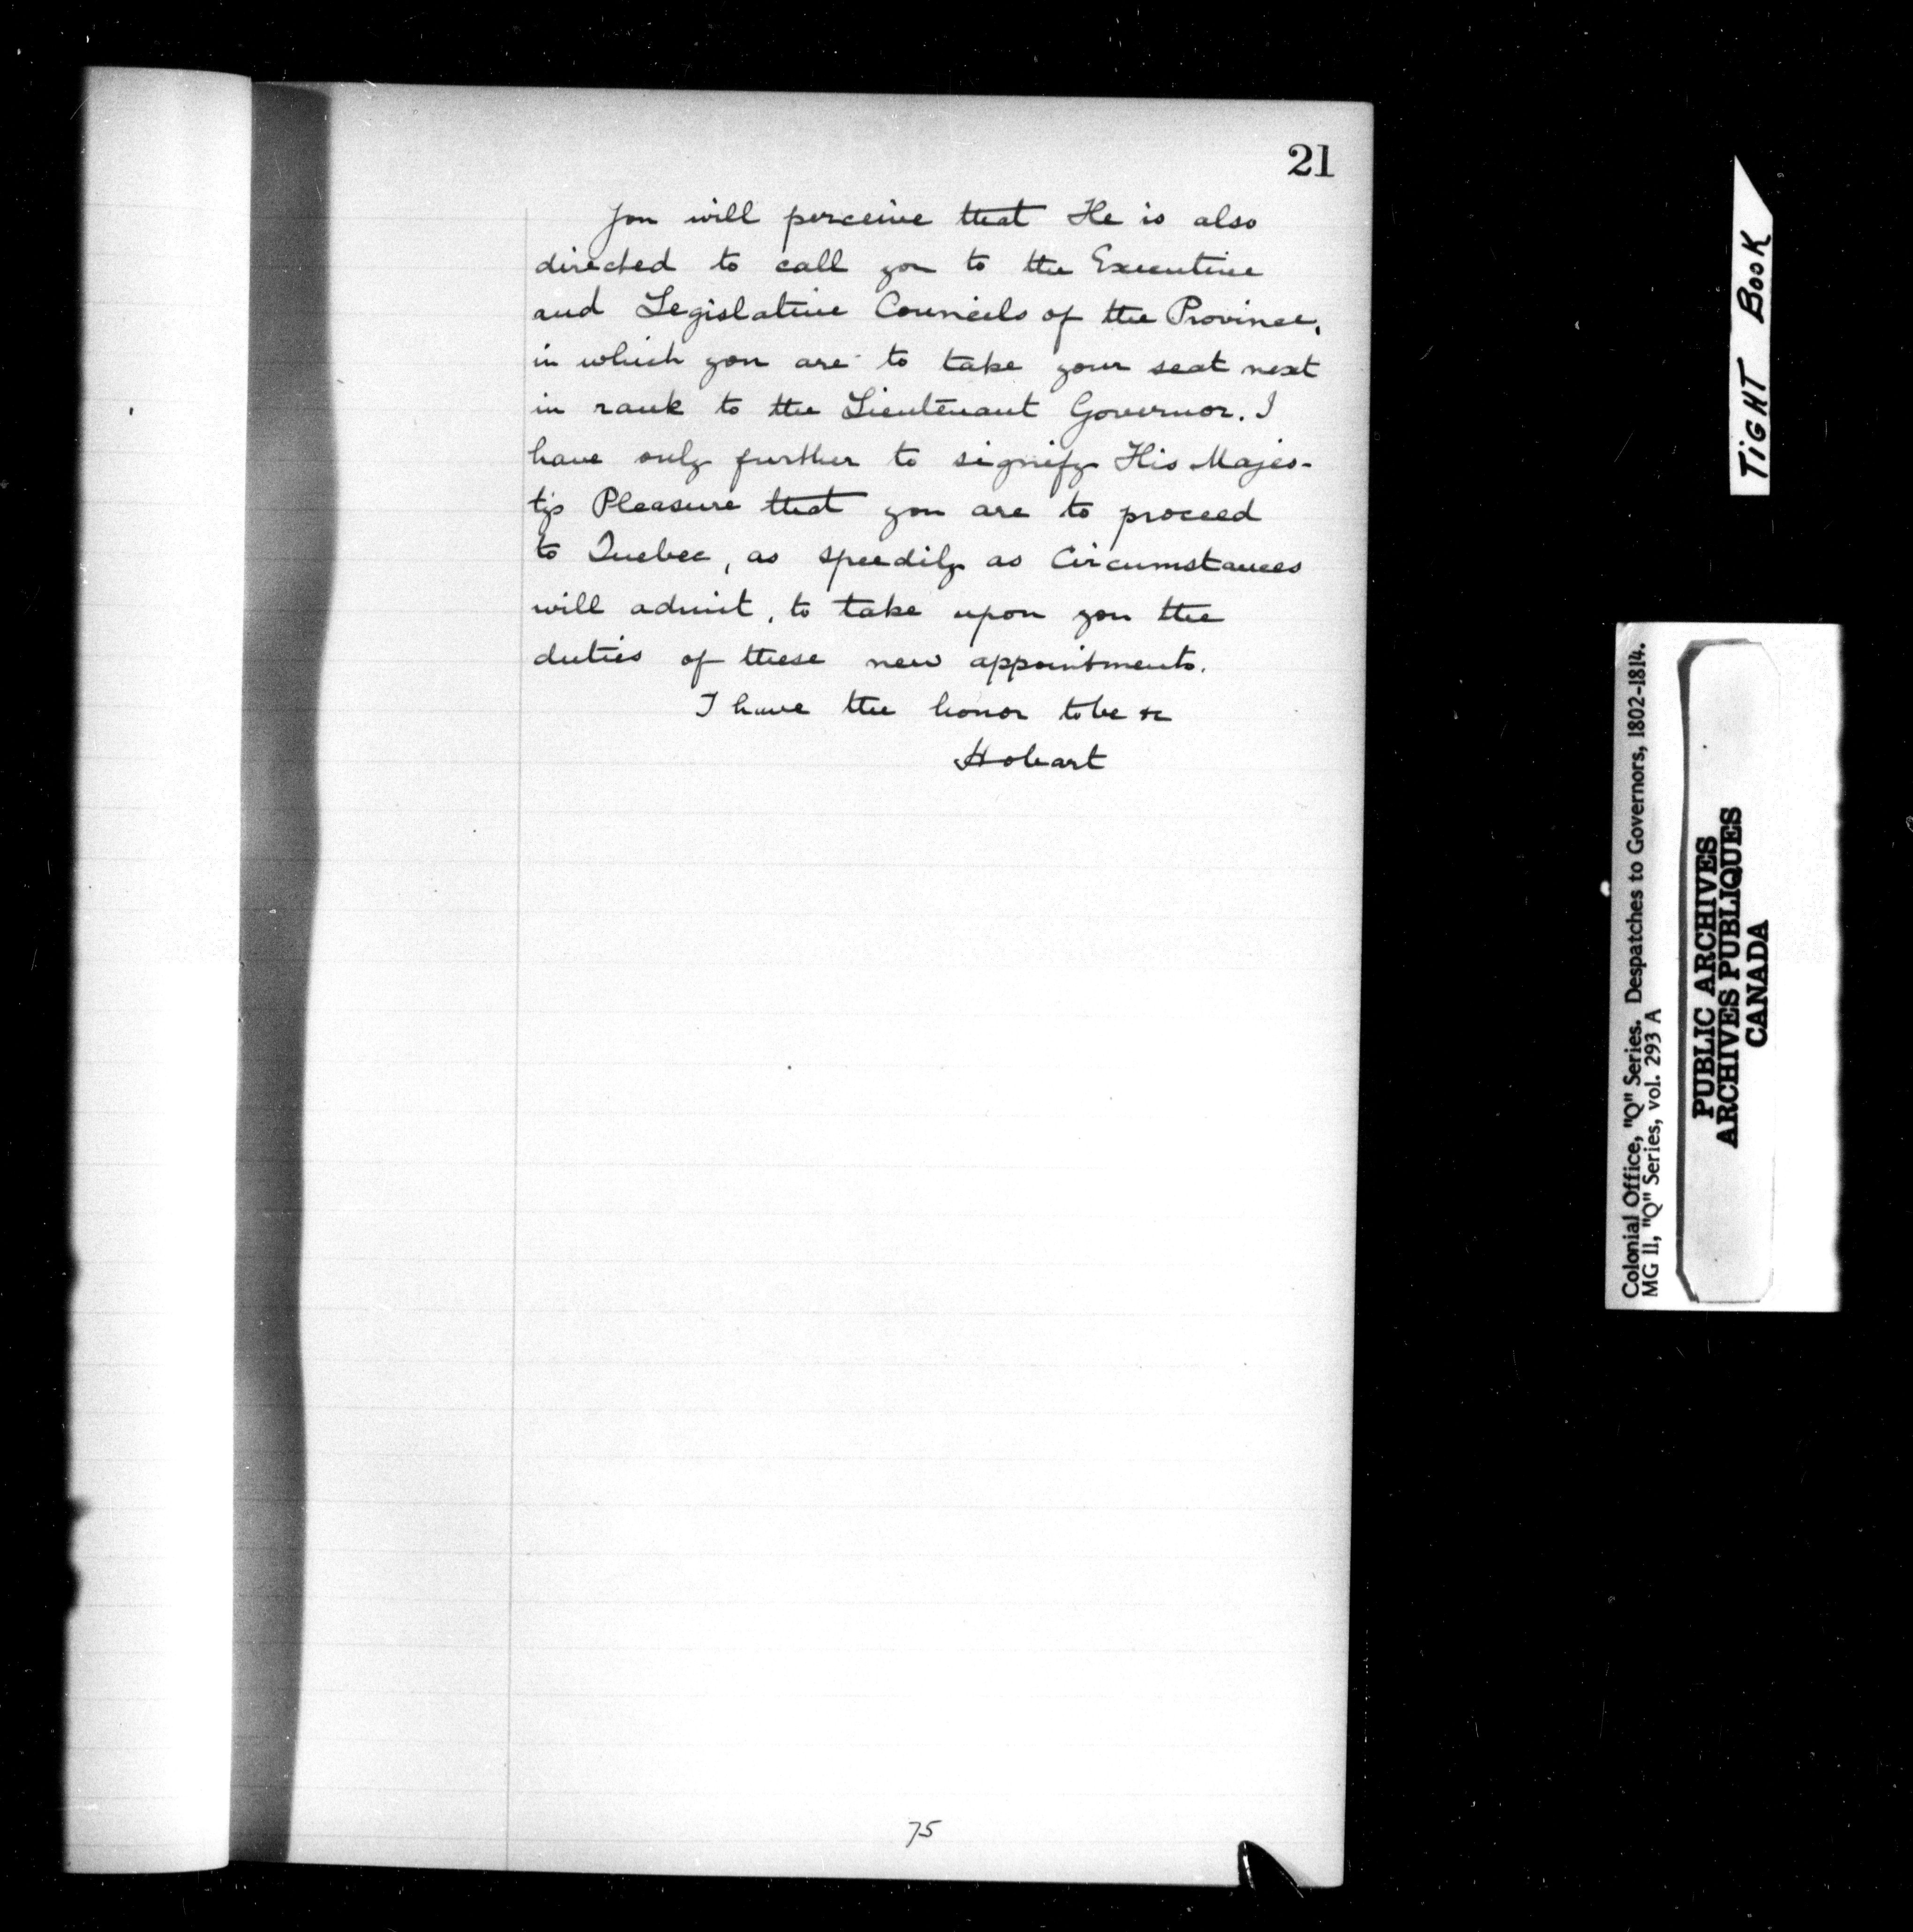 21
You will perceive that He is also
directed to call you to the Executive
and Legislative Councils of the Province,
in which you are to take your seat next
in rank to the Lieutenant Governor. I
have only further to signify His Majes-
ty's Pleasure that you are to proceed
to Quebec, as speedily as Circumstances
will admit, to take upon you the
duties of these new appointments.
I have the honor to be &c
Hobart
75
TIGHT BOOK
Colonial Office, "Q" Series. Despatches to Governors, 1802-1814.
MG 11, "Q" Series, vol. 293 A
PUBLIC ARCHIVES
ARCHIVES PUBLIQUES
CANADA